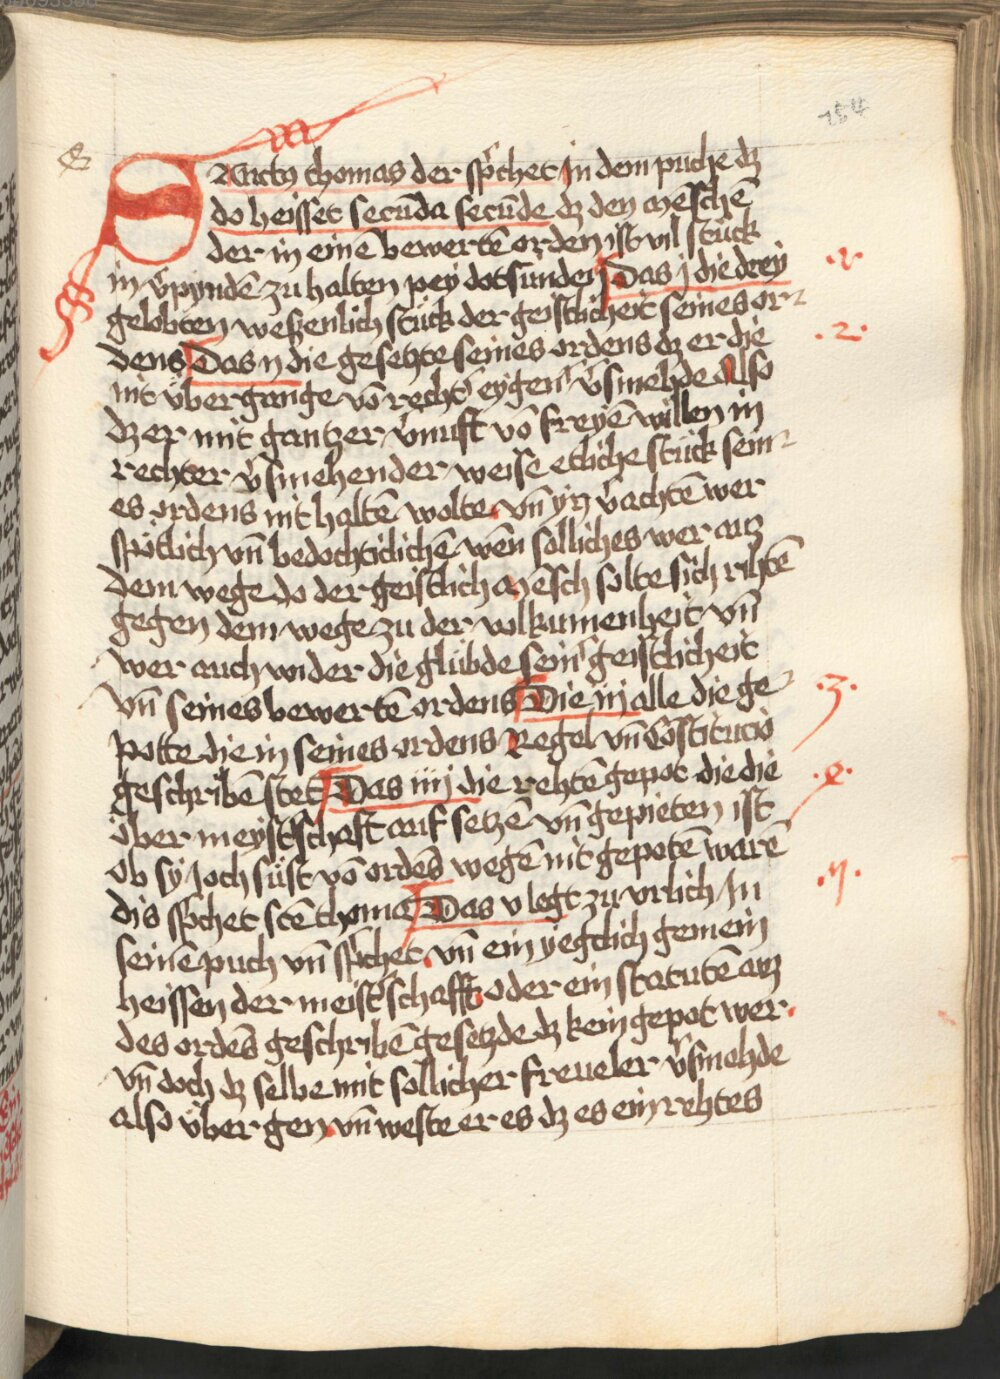 154
SAnctꝰ thomas der sp̾chet in dem puche dz
do heisset secūda secūde dz den mēschē
der in einē bewertē orden ist vil stuck
in v̾pyndē zu halten pey dotsunden Das j die drey .1.
gelobten weßenlich stuck der geistlicheit seines or
dens Das ij die gesetzte seines ordens dz er die .2.
nit übergange vō recht̾ eygen̾ v̾smehde Also
dz er mit gantzer v̾nuft vō freyē willen in
rechter v̾smehender weise etliche stuck sein
es ordens nit haltē wolte vn̄ yn v̾achtē wer
spötlich vn̄ bedochticlichē wēn solliches wer auz
dem wege do der geistlich mēsch solte sich rihtē
gegen dem wege zu der volkumenheit vn̄
wer auch wider die glübde sein̾ geistlicheit
vn̄ seines bewertē ordens Die iij alle die ge .3.
potte die in seines ordens Regel vn̄ Cōstitucio
geschribē stet Das iiij die rehtē gepot die die .4.
öber meyst̾schaft auf setzē vn̄ gepieten ist
ob sy joch süst vō ordēs wegē nit gepotē warē
dis sp̾chet scē thoma Das v legt zu vrlich in
seinē puch vn̄ sp̾chet vn̄ ein yegtlich gemein
heissen der meist̾schafft oder ein statutē auz
des ordēs geschribē gesetzde dz kein gepot wer
vn̄ doch dz selbe mit sollicher freueler v̾smehde
also über gen vn̄ weste er es dz es ein rehtes